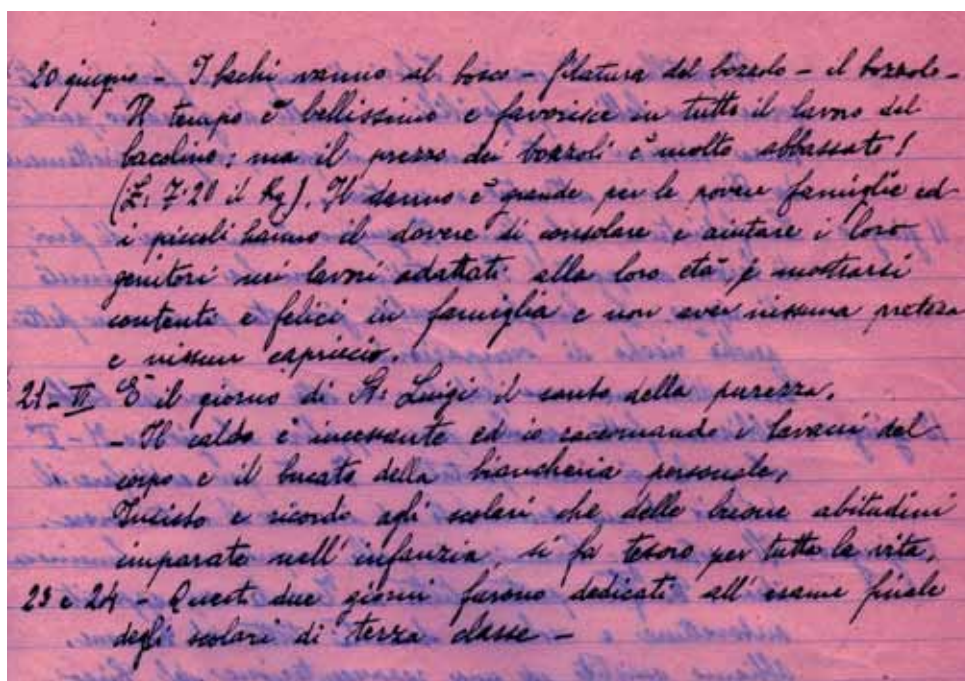 20 giugno - I bachi vanno al bosco - filatura del bozzolo - il bozzolo -
Il tempo è bellissimo e favorisce in tutto il lavoro del
bacolino; ma il prezzo dei bozzoli è molto abbassato!
(£: 7:20 il Kg). Il danno è grande per le povere famiglie ed
i piccoli hanno il dovere di consolare e aiutare i loro
genitori nei lavori adattati alla loro età, e mostrarsi
contenti e felici in famiglia e non aver nissuna pretesa
e nissun capriccio.
21 - VI È il giorno di St: Luigi il santo della purezza.
- Il caldo è incessante ed io raccomando i lavacri del
corpo e il bucato della biancheria personale.
Insisto e ricordo agli scolari che delle buone abitudini
imparate nell' infanzia, si fa tesoro per tutta la vita.
23 e 24 - Questi due giorni furono dedicati all' esame finale
degli scolari di terza classe -